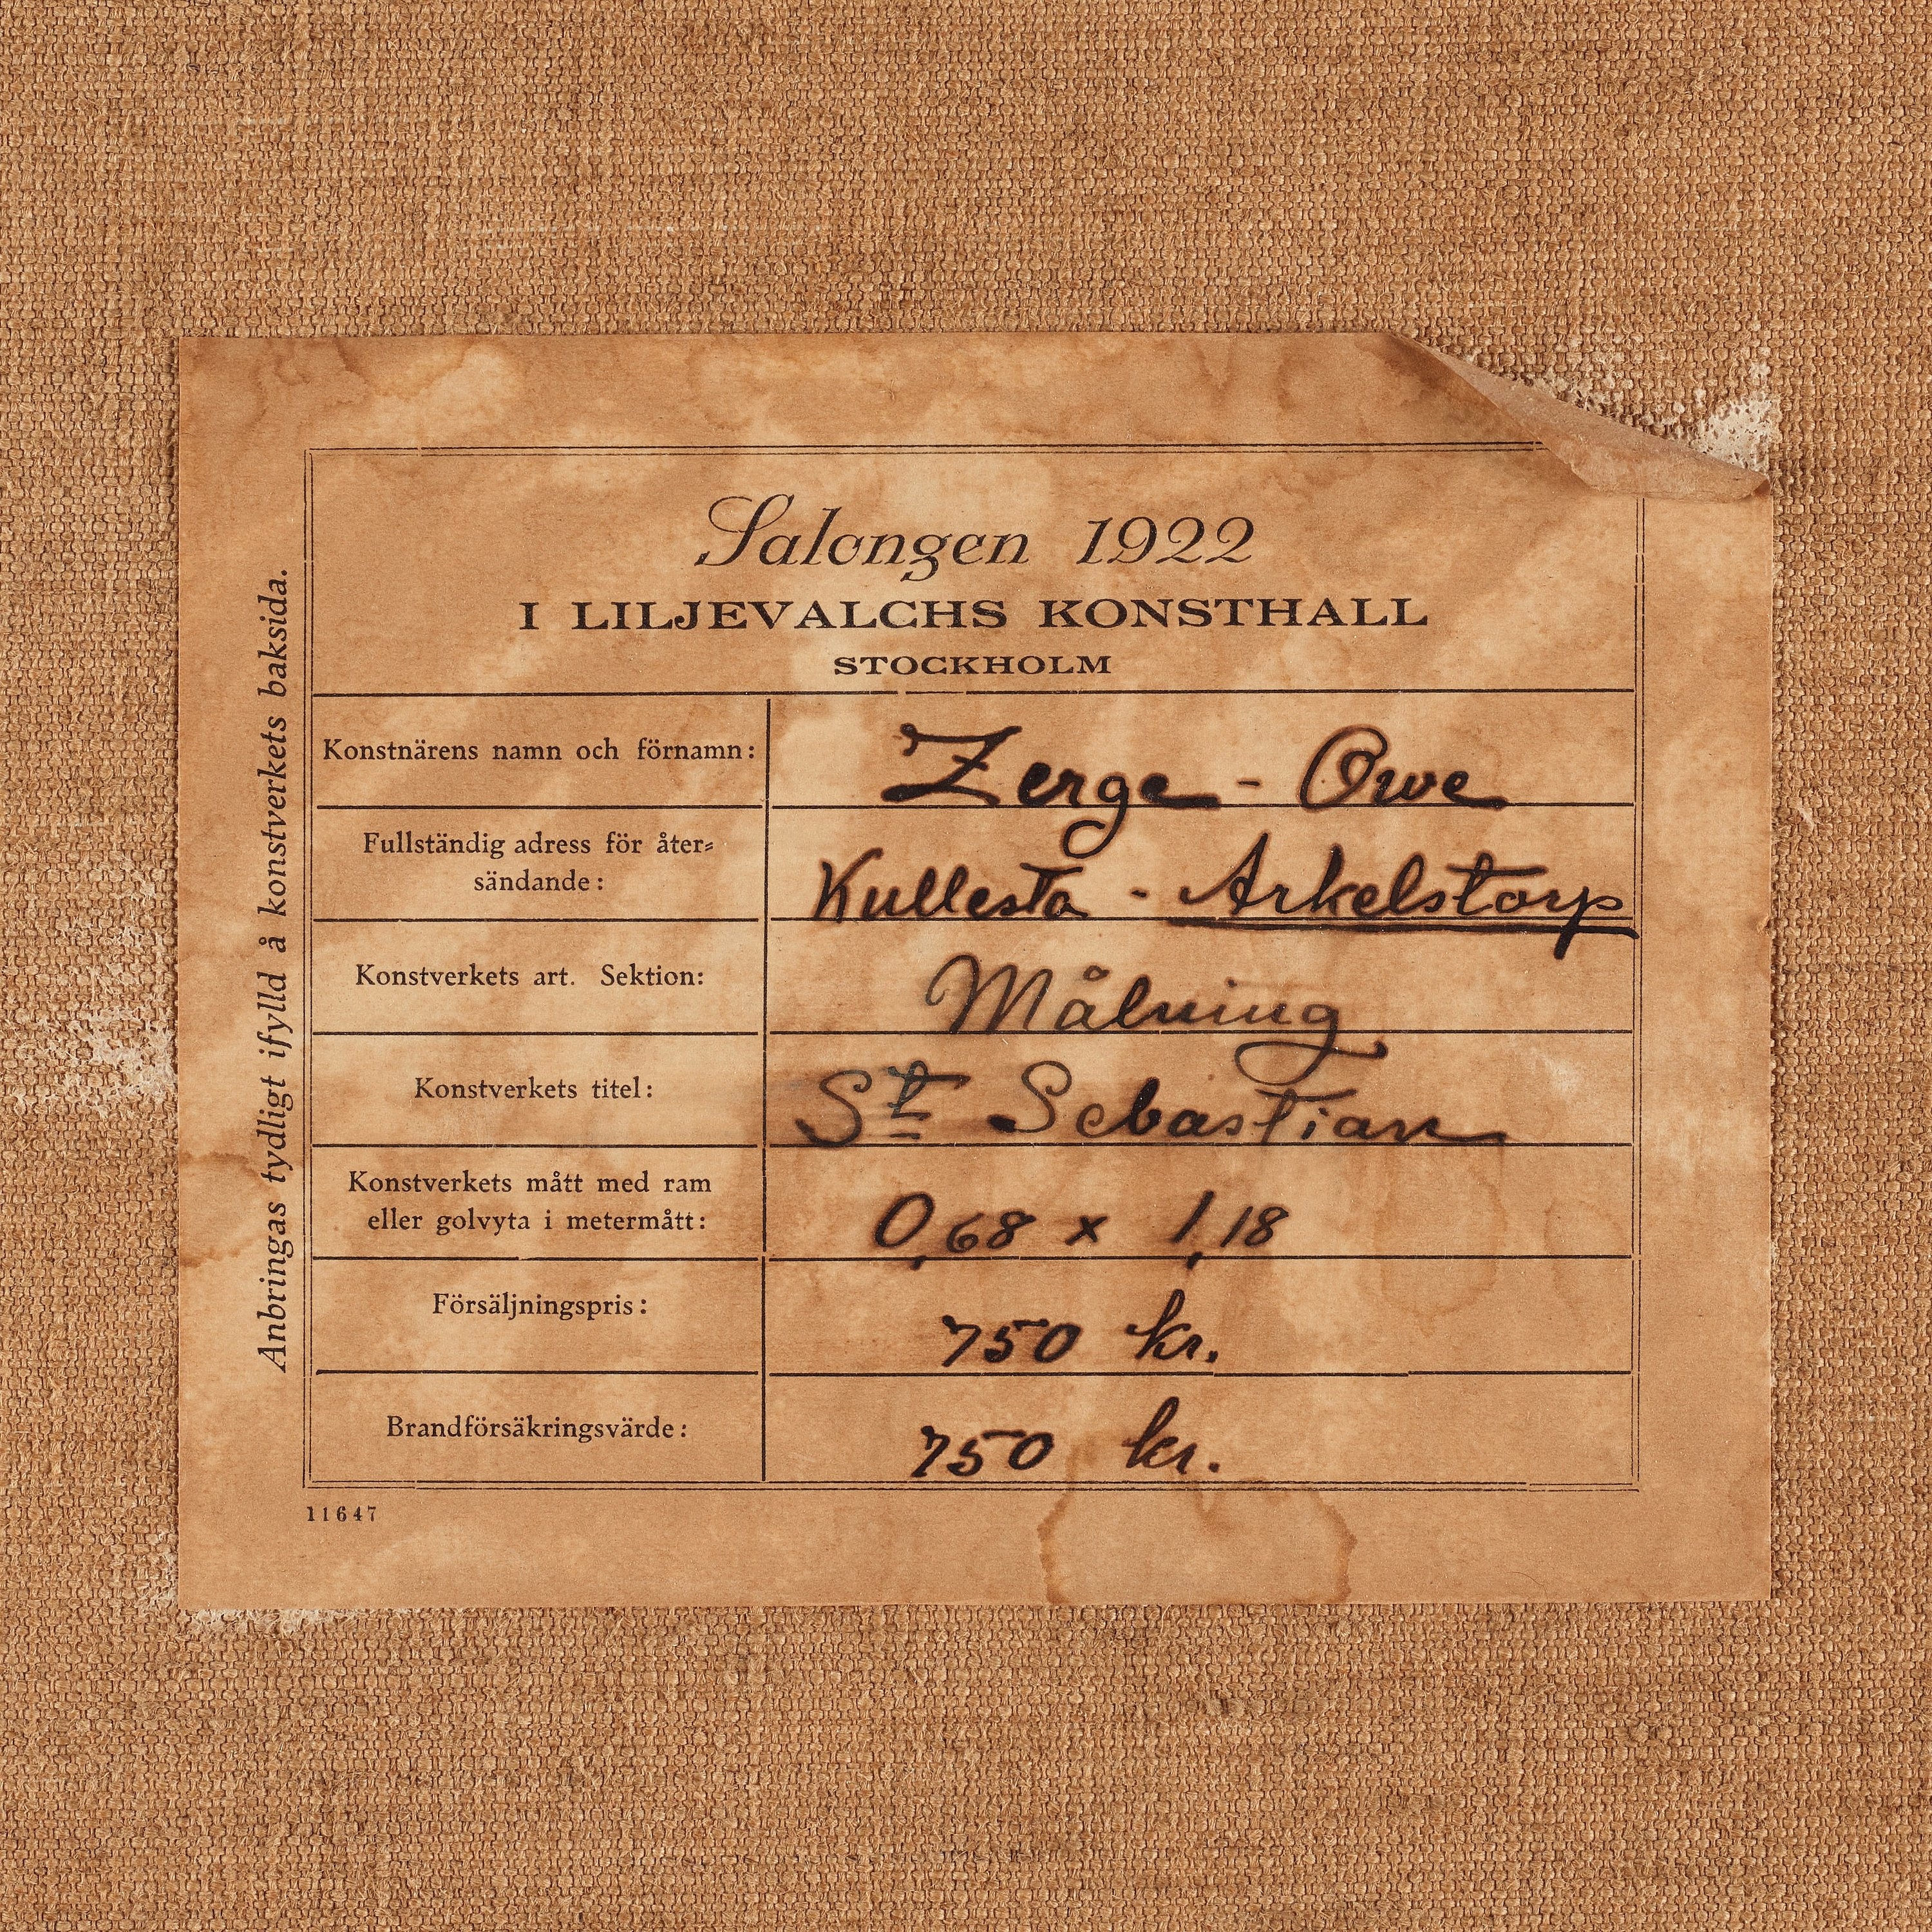 Salongen 1922
I LILJEVALCHS KONSTHALL
STOCKHOLM
Konstnärens namn och förnamn: Zerge - Owe
Fullständig adress för åter=
sändande: Kullesta - Arkelstorp
Konstverkets art. Sektion: Målning
Konstverkets titel: St Sebastian
Konstverkets mått med ram
eller golvyta i metermått: 0,68 x 1,18
Försäljningspris: 750 kr.
Brandförsäkringsvärde: 750 kr.
11647
Anbringas tydligt ifylld å konstverkets baksida.